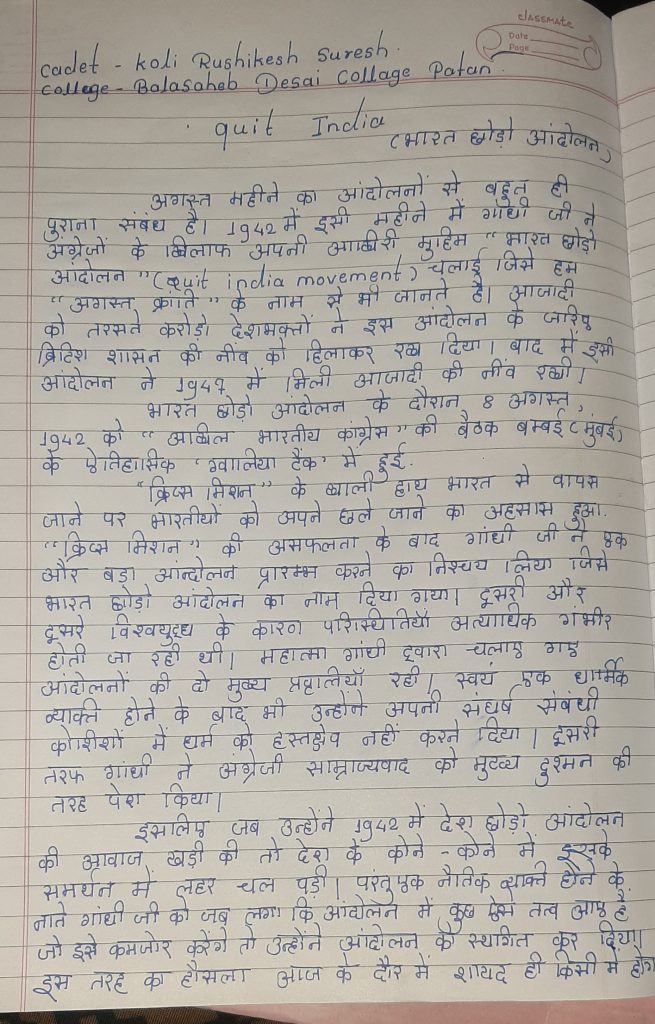 classmate
Date
Page
Cadet - Koli Rushikesh Suresh.
College - Balasaheb Desai Collage Patan.
quit India
(भारत छोडो आंदोलन)
अगस्त महीने का आंदोलनों से बहुत ही
पुराना संबंध है। 1942 में इसी महीने में गांधी जी ने
अंग्रेजों के खिलाफ अपनी आखिरी मुहिम "भारत छोडो
आंदोलन" (quit india movement) चलाई जिसे हम
"अगस्त क्रांति" के नाम से भी जानते है। आजादी
को तरसते करोडो देशभक्तों ने इस आंदोलन के जरिए
ब्रिटिश शासन की नींव को हिलाकर रख दिया। बाद में इसी
आंदोलन ने 1947 में मिली आजादी की नींव रखी।
भारत छोडो आंदोलन के दौरान 8 अगस्त,
1942 को "अखिल भारतीय कांग्रेस" की बैठक बम्बई (मुंबई)
के ऐतिहासिक 'ग्वालिया टैंक' में हुई.
"क्रिप्स मिशन" के खाली हाथ भारत से वापस
जाने पर भारतीयों को अपने छले जाने का अहसास हुआ.
"क्रिप्स मिशन" की असफलता के बाद गांधी जी ने एक
और बडा आंन्दोलन प्रारम्भ करने का निश्चय लिया जिसे
भारत छोडो आंदोलन का नाम दिया गया। दूसरी और
दूसरे विश्वयुध्ध के कारण परिस्थितियाँ अत्याधिक गंभीर
होती जा रही थी। महात्मा गांधी द्वारा चलाए गए
आंदोलनों की दो मुख्य प्रणालियाँ रही। स्वयं एक धार्मिक
व्यक्ति होने के बाद भी उन्होंने अपनी संघर्ष संबंधी
कोशीशों में धर्म को हस्तक्षेप नहीं करने दिया। दूसरी
तरफ गांधी ने अंग्रेजी साम्राज्यवाद को मुख्य दुश्मन की
तरह पेश किया।
इसलिए जब उन्होंने 1942 में देश छोडो आंदोलन
की आवाज खडी की तो देश के कोने - कोने में इसके
समर्थन में लहर चल पडी। परंतु एक नैतिक व्यक्ति होने के
नाते गांधी जी को जब लगा कि आंदोलन में कुछ ऐसे तत्व आए है
जो इसे कमजोर करेंगे तो उन्होंने आंदोलन को स्थगित कर दिया।
इस तरह का हौसला आज के दौर में शायद ही किसी में होगा